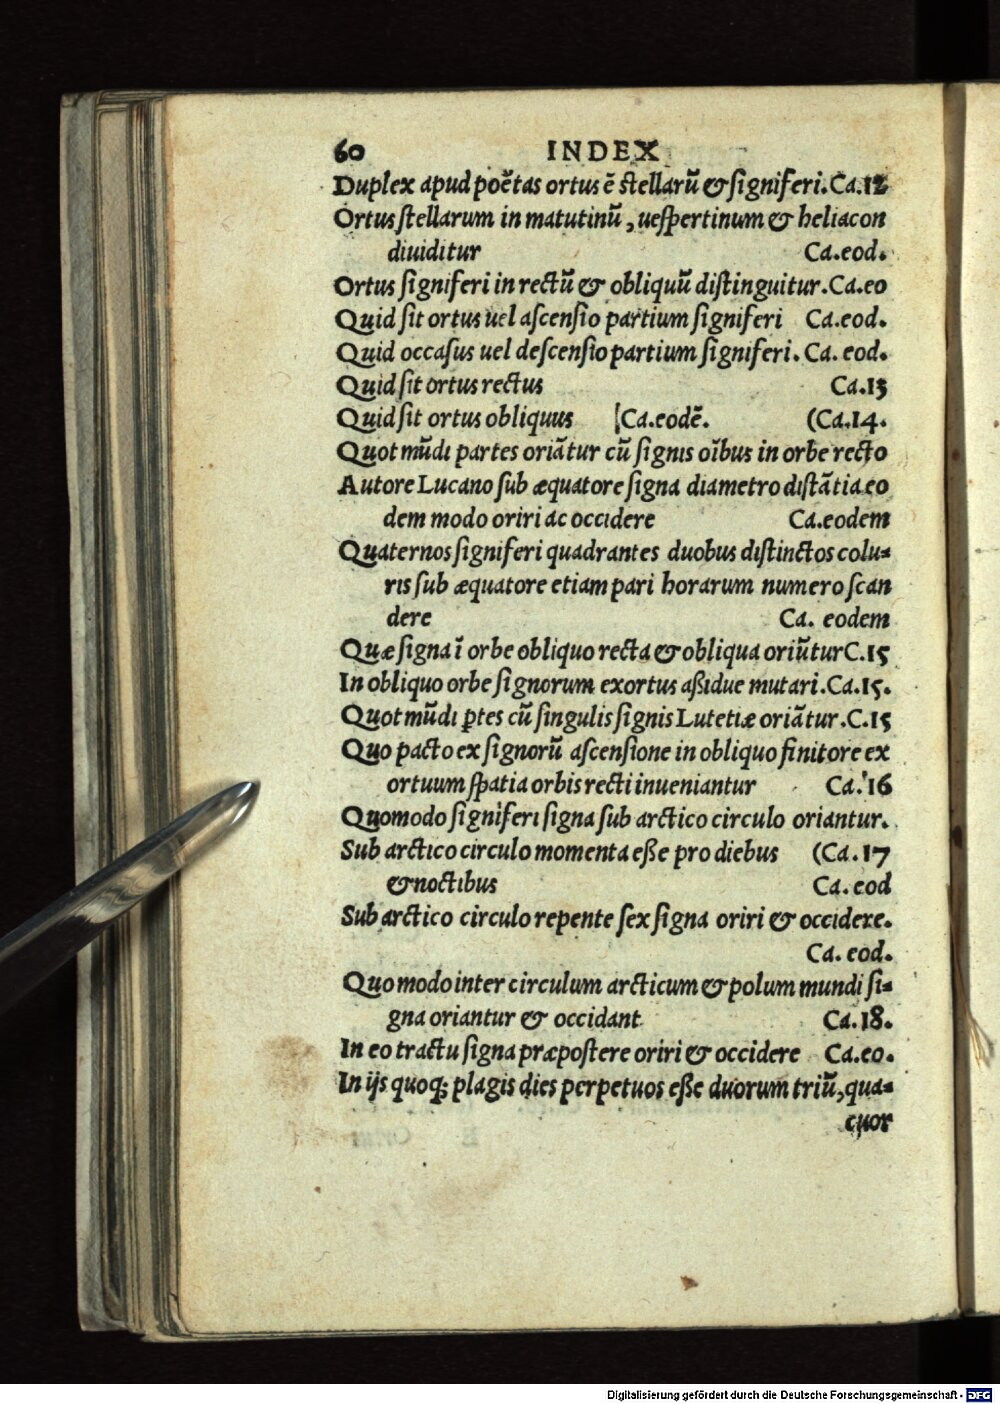 60 INDEX
Duplex apud poëtas ortus ē stellarū & signiferi. Ca.12
Ortus stellarum in matutinū, uespertinum & heliacon
diuiditur Ca.eod.
Ortus signiferi in rectū & obliquū distinguitur. Ca.eo
Quid sit ortus uel ascensio partium signiferi Ca.eod.
Quid occasus uel descensio partium signiferi. Ca. eod.
Quid sit ortus rectus Ca.13
Quid sit ortus obliquus [Ca.eodē. (Ca.14.
Quot mūdi partes oriātur cū signis oībus in orbe recto
Autore Lucano sub æquatore signa diametro distātia eo
dem modo oriri ac occidere Ca.eodem
Quaternos signiferi quadrantes duobus distinctos colu-
ris sub æquatore etiam pari horarum numero scan
dere Ca. eodem
Quæ signa ī orbe obliquo recta & obliqua oriūtur C.15
In obliquo orbe signorum exortus aßidue mutari. Ca.15.
Quot mūdi ꝑtes cū singulis signis Lutetiæ oriātur. C.15
Quo pacto ex signorū ascensione in obliquo finitore ex
ortuum spatia orbis recti inueniantur Ca.'16
Quomodo signiferi signa sub arctico circulo oriantur.
Sub arctico circulo momenta eße pro diebus (Ca. 17
& noctibus Ca. eod
Sub arctico circulo repente sex signa oriri & occidere.
Ca. eod.
Quo modo inter circulum arcticum & polum mundi si-
gna oriantur & occidant Ca.18.
In eo tractu signa præpostere oriri & occidere Ca.eo.
In ijs quoq; plagis dies perpetuos eße duorum triū, qua-
cuor
Digitalisierung gefördert durch die Deutsche Forschungsgemeinschaft - DFG